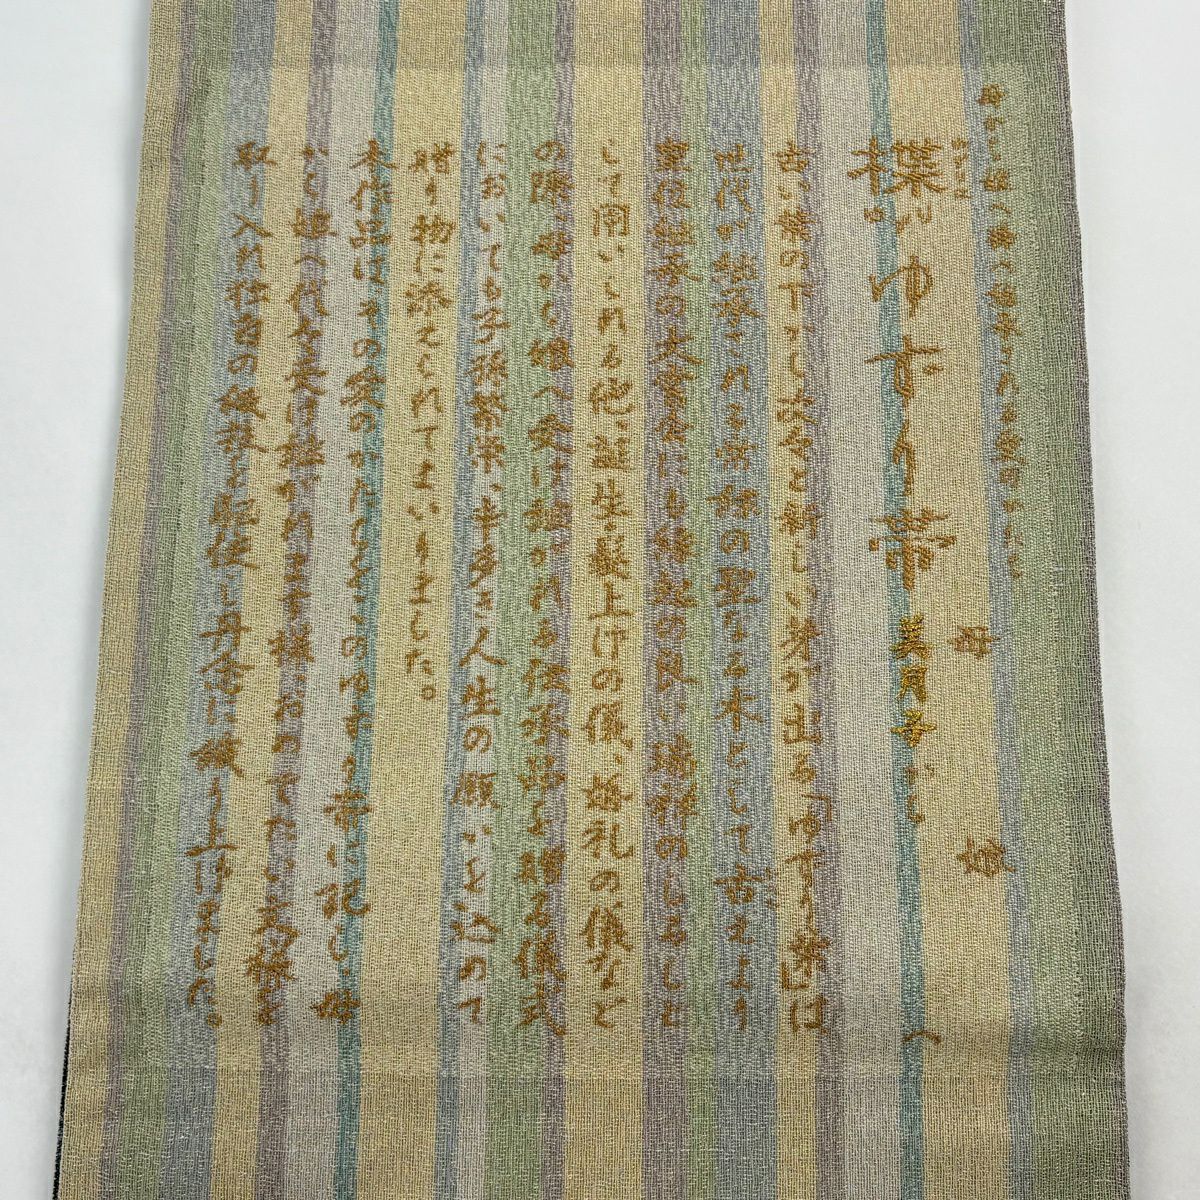 母から娘へ
ゆずりは
楪の
ゆずり葉
母 から 娘 へ
古い葉の下から次々と新しい芽が出る「ゆずり葉」は
世代が継承される常緑の聖なる木として古えより
皇位継承の大嘗祭にも縁起の良い瑞祥のしるしと
して用いられる他、誕生・髪上げの儀、婚礼の儀など
の際、母から娘へ受け継がれる伝承品を贈る儀式
においても子孫繁栄、幸多き人生の願いを込めて
贈り物に添えられてまいりました。
本作品はその愛のかたち「ゆずり葉」に記し、母
から娘へ代々受け継がれます様、おめでたい文様を
取り入れ独自の技法を駆使し丹念に織り上げました。